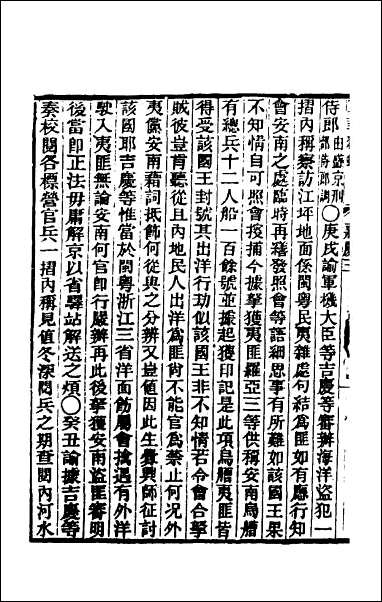 侍郎由盛京刑部侍郎調○庚戌諭軍機大臣等吉慶等審辦海洋盜犯一
摺內稱察訪江坪地面係閩粵民夷雜處句結為匪如有應行知
會安南之處臨時再繕發照會等語細思事有所難如該國王果
不知情自可照會搜捕今據拏獲夷匪羅亞三等供稱安南烏艚
有總兵十二人船一百餘號並據起獲印記是此項烏艚夷匪皆
得受該國王封號其出洋行劫似該國王非不知情若令會合拏
賊彼豈肯聽從且內地民人出洋為匪尚不能官為禁止何況外
夷儻安南藉詞抵飾何從與之分辨又豈值因此生釁興師征討
該國耶吉慶等惟當於閩粵浙江三省洋面飭屬會擒遇有外洋
駛入夷匪無論安南何官即行嚴辦再此後拏獲安南盜匪審明
後當即正法毋庸解京以省驛站解送之煩○癸丑諭據吉慶等
奏校閱各標營官兵一摺內稱見值冬深閱兵之期查閱內河水